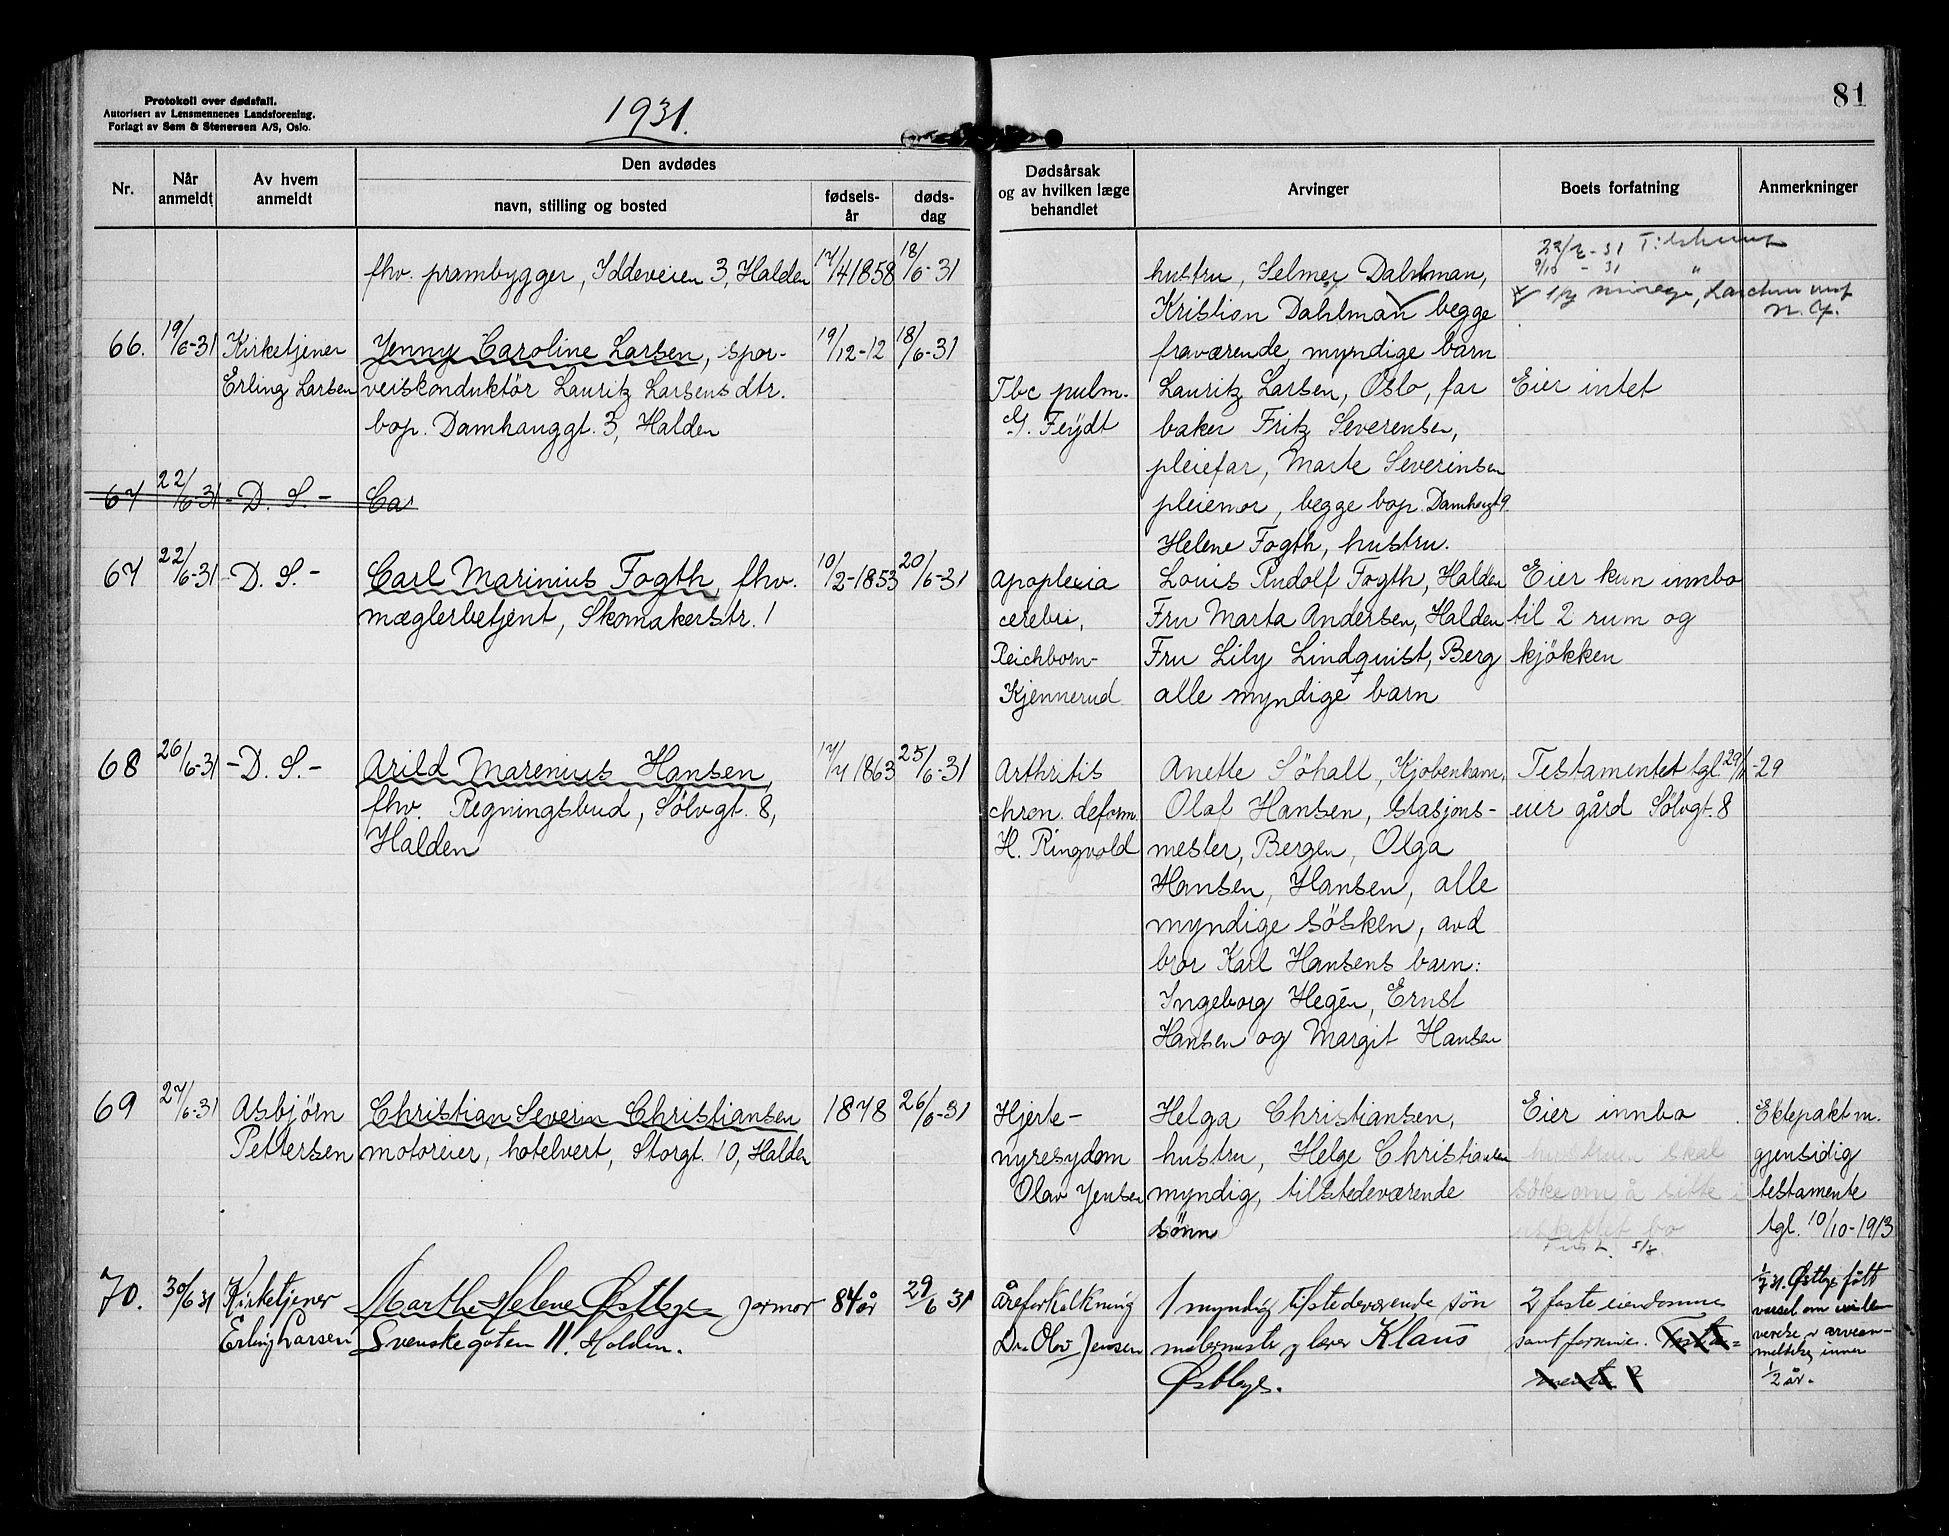 Protokoll over dødsfall.
Autorisert av Lensmennenes Landsforening.
Forlagt av Sem & Stenersen A/S, Oslo.
1931.
81
Nr.
Når anmeldt
Av hvem anmeldt
Den avdødes
navn, stilling og bosted
fødselsår
dødsdag
Dødsårsak og av hvilken læge behandlet
Arvinger
Boets forfatning
Anmerkninger
fhv. prambygger, Iddeveien 3, Halden 17/4 1858 18/6-31
hustru, Selmer Dahlman,
Kristian Dahlman begge
fraværende, myndige barn
9/10 - 31 "
66. 19/6-31 Kirketjener
Erling Larsen
Jenny Caroline Larsen, spor-
veiskonduktör Lauritz Larsens dtr.
bop. Damhauggt. 3, Halden
19/12-12 18/6-31
Tbc pulm.
G. Feydt
Lauritz Larsen, Oslo, far
baker Fritz Severensen,
pleiefar, Marte Severinsen
pleiemor, begge bop. Damhaugt 9.
Eier intet
67 22/6-31 -D. S.- Car
67 22/6-31 -D. S.-
Carl Marinius Fogth, fhv.
mæglerbetjent, Skomakerstr. 1
10/2-1853 20/6-31
Apoplexia
cerebri,
Reichborn-
Kjennerud
Helene Fogth, hustru.
Louis Rudolf Fogth, Halden
Fru Marta Andersen, Halden
Fru Lily Lindquist, Berg
alle myndige barn
Eier kun innbo
til 2 rum og
kjökken
68 26/6-31 -D. S.-
Arild Marenius Hansen,
fhv. Regningsbud, Sølvgt. 8,
Halden
17/7 1863 25/6-31
Arthritis
chron. deform.
H. Ringvold
Anette Söhalt, Kjöbenhavn,
Olaf Hansen, stasjons-
mester, Bergen, Olga
Hansen, Hansen, alle
myndige sösken, avd
bror Karl Hansens barn:
Ingeborg Hegén, Ernst
Hansen og Margit Hansen
Testamentet tgl. 29/1-29
eier gård Sölvgt. 8
69 27/6-31 Asbjörn
Pettersen
Christian Severin Christiansen
motoreier, hotelvert, Storgt. 10, Halden
1878 26/6-31
Hjerte-
nyresydom
Olav Jensen
Helga Christiansen,
hustru, Helge Christiansen
myndig, tilstedeværende
sönn
Eier innbo
hustruen skal
söke om å sitte i
uskiftet bo
5/8.
Ektepakt m.
gjensidig
testamente
tgl. 10/10-1913
70. 30/6 31 Kirketjener
Erling Larsen
Marthe Helene Østbye jormor
Svenskegaten 11. Halden.
84 år 29/6 31
Åreforkalkning
Dr. Olav Jensen
1 myndig tilstedeværende søn
malermester Klaus
Østbye.
2 faste eiendomme
samt formue. Testa-
mente?
1/7 31. Østbye fått
varsel om
arvean-
meldelse innen
1/2 år.